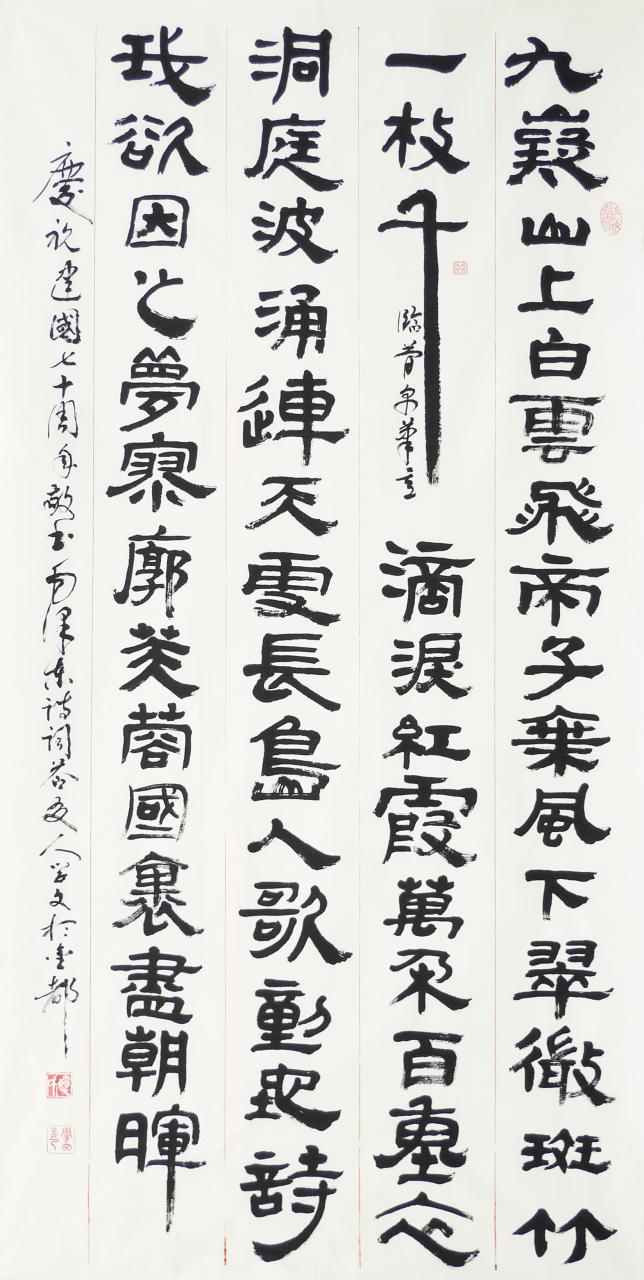 九嶷山上白雲飛帝子乘風下翠微斑竹
一枝千滴淚紅霞萬朵百重衣
臨簡帛筆意
洞庭波涌連天雪長島人歌動地詩
我欲因之夢寥廓芙蓉國裏盡朝暉
慶祝建國七十周年敬书毛澤東詩詞答友人学文於金都